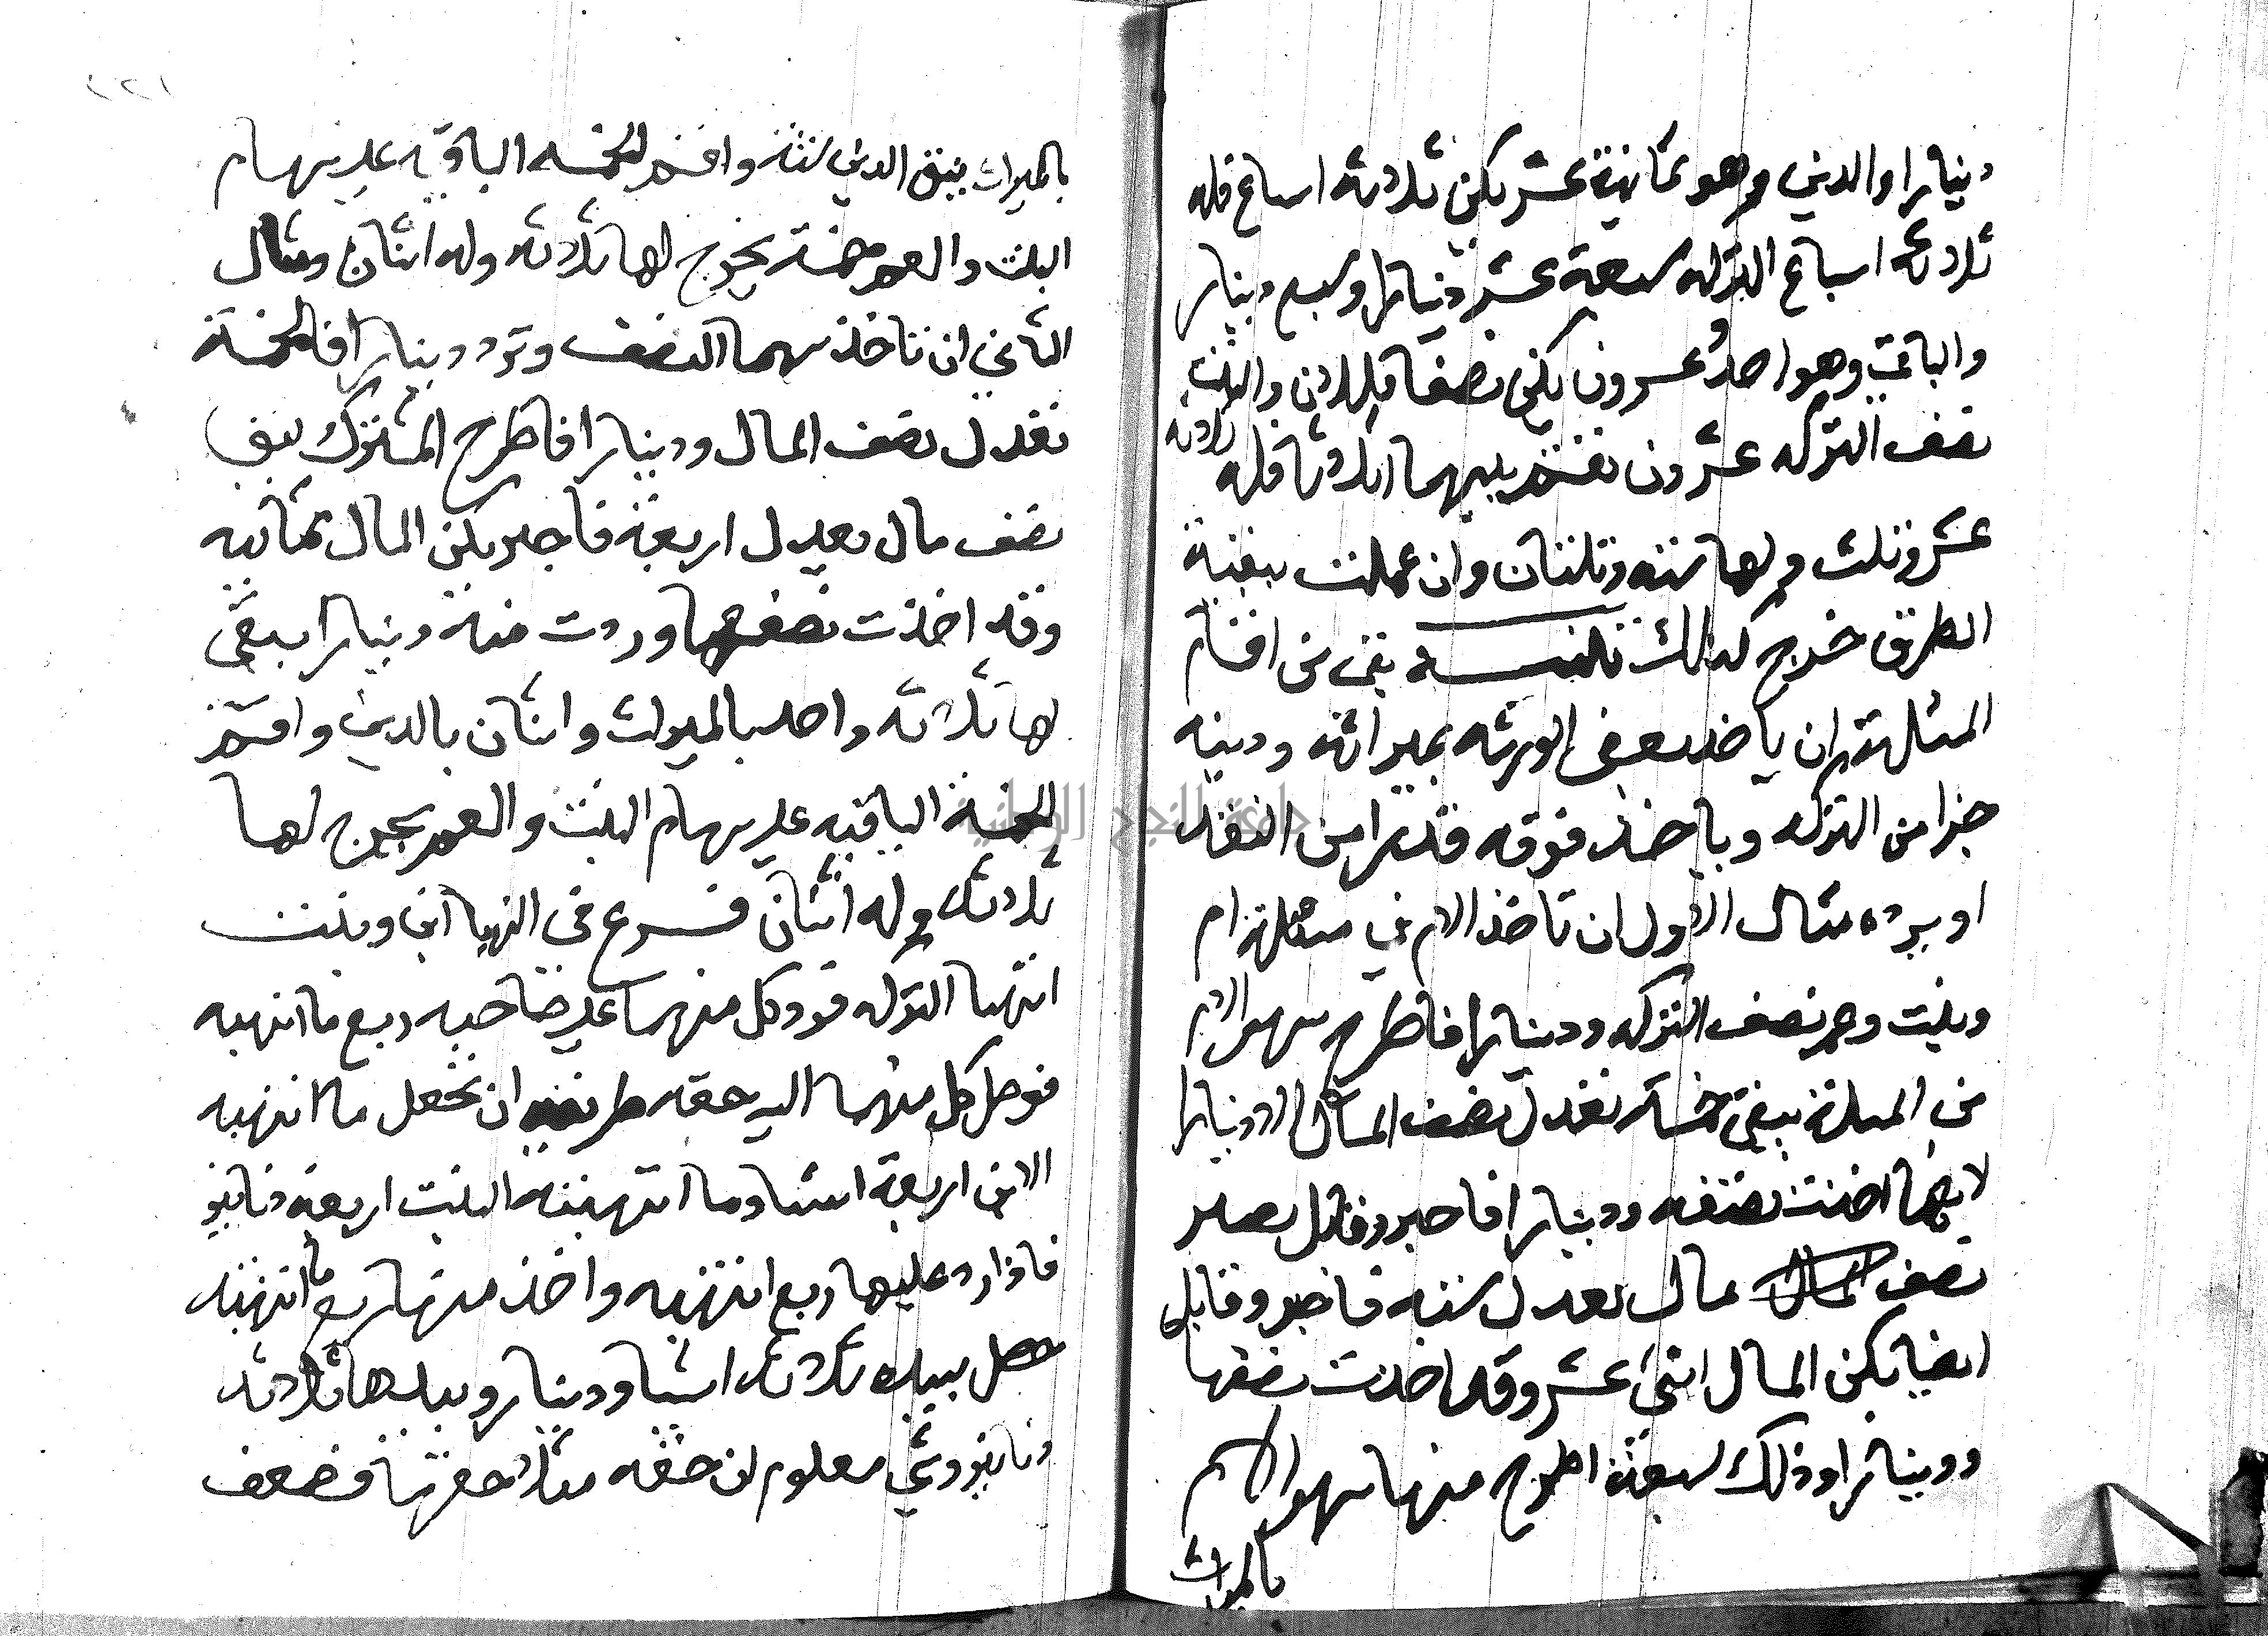 دينارا والدين وهو ثمانية عشر يكن ثلاثة اسباع فله
ثلاثة اسباع التركه سبعة عشر دينارا وسبع دينار
والباقي وهو احد وعشرون يكن نصفا فللابن والبنت
نصف التركه عشرون تقسم بينهما اثلاثا فله ثلاثة
عشر وثلث ولها ستة وثلثان وان عملت ببقية
الطرق خرج كذلك تنبيه بقي من اقسام
المسئلة ان ياخذ بعض الورثه بميراثه ودينه
جزا من التركه وياخذ فوقه قدرا من النقد
او يرده مثال الاول ان تاخذ الام في مسئلة ام
وبنت وعم نصف التركه ودينارا فاطرح سهم الام
من المسئلة يبقى خمسة تعدل نصف المال الا دينارا
لانها اخذت نصفه ودينارا فاجبر وقابل يصير
نصف مال تعدل ستة فاجبر وقابل
ايضا يكن المال اثني عشر وقد اخذت نصفها
ودينارا وذلك سبعة اطرح منها سهم الام
بالميراث
١٢٢
بالميراث يبقى الدين ستة واقسم الخمسه الباقيه على سهام
البنت والعم خمسة يخرج لها ثلاثه وله اثنان ومثال
الثاني ان تاخذ سهما النصف وترد دينارا فالخمسة
تعدل نصف المال ودينارا فاطرح المشترك يبقى
نصف مال يعدل اربعة فاجبر يكن المال ثمانيه
وقد اخذت نصفها وردت منه دينارا يبقى
لها ثلاثه واحد بالميراث واثنان بالدين واقسم
الخمسة الباقيه على سهام البنت والعم يخرج لها
ثلاثه وله اثنان فرع في النهبا ابن وبنت
انتهبا التركه فرد كل منهما على صاحبه ربع ما انتهبه
فوصل كل منهما الى حقه طريقه ان تجعل ما انتهبه
الابن اربعة اشيا وما انتهبته البنت اربعة دنانير
فاذا رد عليها ربع انتهبه واخذ منها ربع ما انتهبته
حصل بيده ثلاثة اشيا ودينار وبيدها ثلاثة
دنانير وشي معلوم ان حقه مثلا حقها فضعف